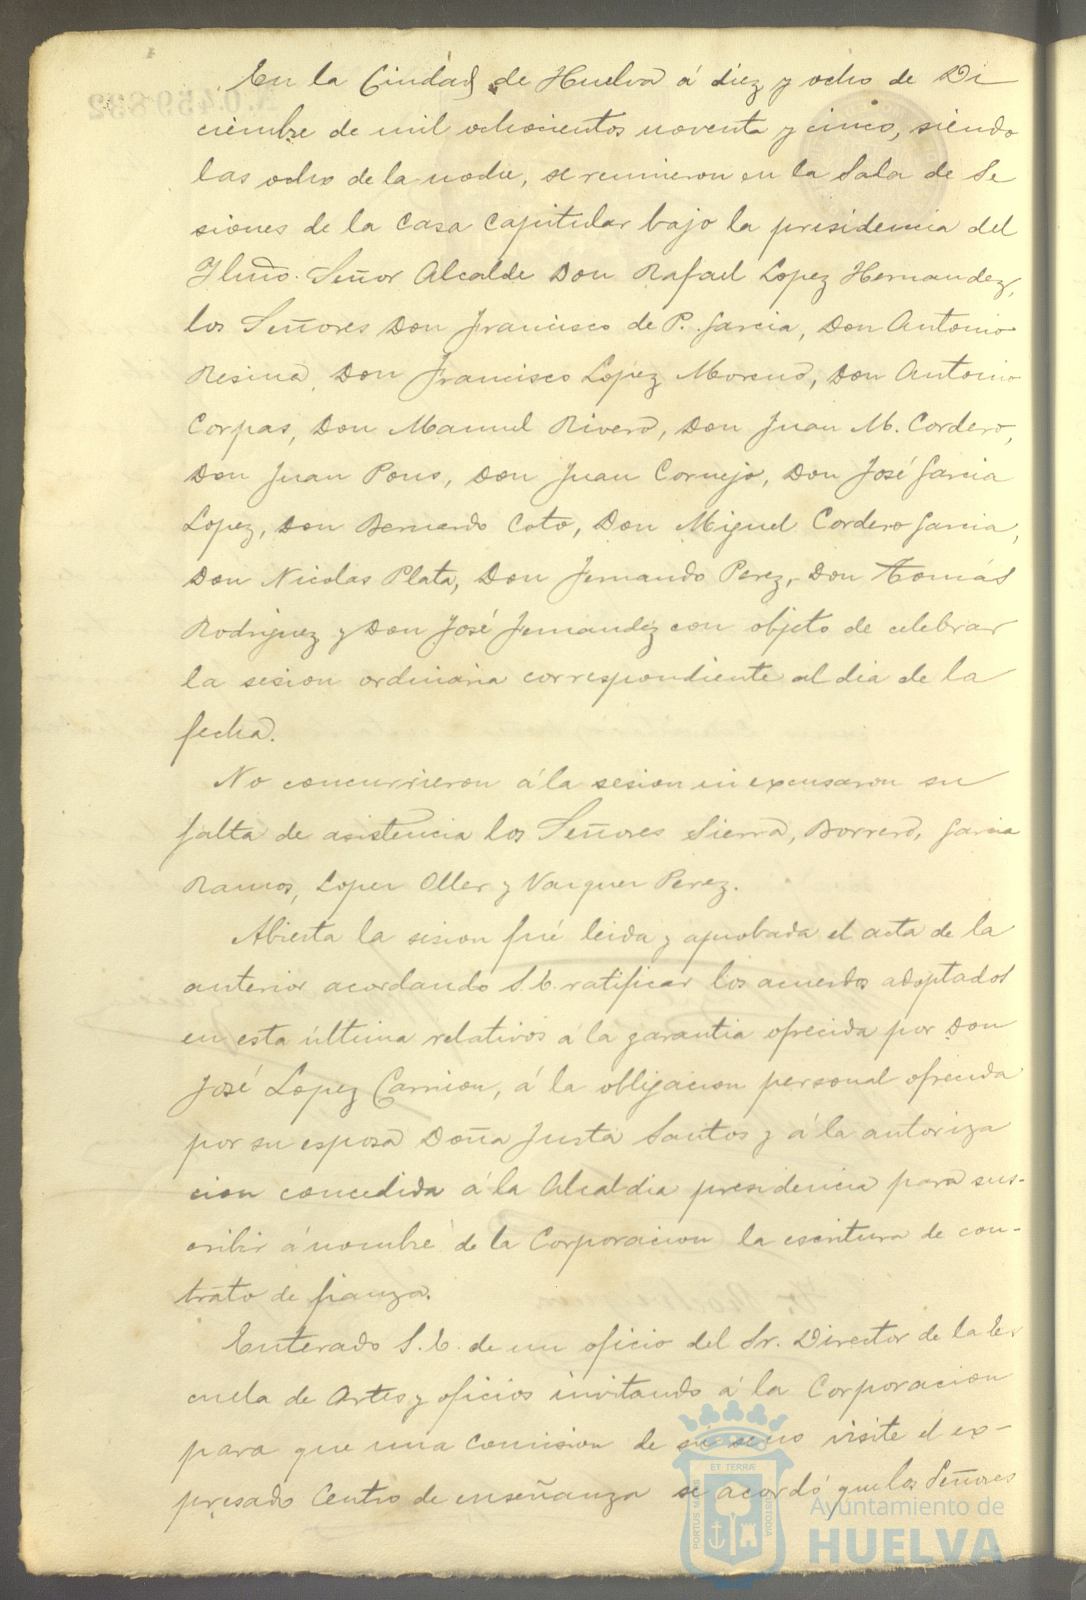 En la Ciudad de Huelva á diez y ocho de Di
ciembre de mil ochocientos noventa y cinco, siendo
las ocho de la noche, se reunieron en la Sala de Se
siones de la Casa Capitular bajo la presidencia del
Ilmo. Señor Alcalde Don Rafael Lopez Hernandez,
los Señores Don Francisco de P. Garcia, Don Antonio
Resina, Don Francisco Lopez Moreno, Don Antonio
Corpas, Don Manuel Rivero, Don Juan M. Cordero,
Don Juan Pons, Don Juan Cornejo, Don José Garcia
Lopez, Don Bernardo Coto, Don Miguel Cordero Garcia,
Don Nicolas Plata, Don Fernando Perez, Don Tomás
Rodriguez y Don José Fernandez con objeto de celebrar
la sesion ordinaria correspondiente al dia de la
fecha.
No concurrieron á la sesion ni excusaron su
falta de asistencia los Señores Sierra, Borrero, Garcia
Ramos, Lopez Oller y Vazquez Perez.
Abierta la sesion fué leida y aprobada el acta de la
anterior acordando S.E. ratificar los acuerdos adoptados
en esta última relativos á la garantia ofrecida por Don
José Lopez Carrion, á la obligacion personal ofrecida
por su esposa Doña Justa Santos y á la autoriza
cion concedida á la Alcaldia presidencia para sus-
cribir á nombre de la Corporacion la escritura de con-
trato de fianza.
Enterado S.E. de un oficio del Sr. Director de la Es
cuela de Artes y oficios invitando á la Corporacion
para que una comision de su seno visite el ex-
presado Centro de enseñanza se acordó que los Señores
PORTUS MARIS ET TERRÆ CUSTODIA
Ayuntamiento de
HUELVA